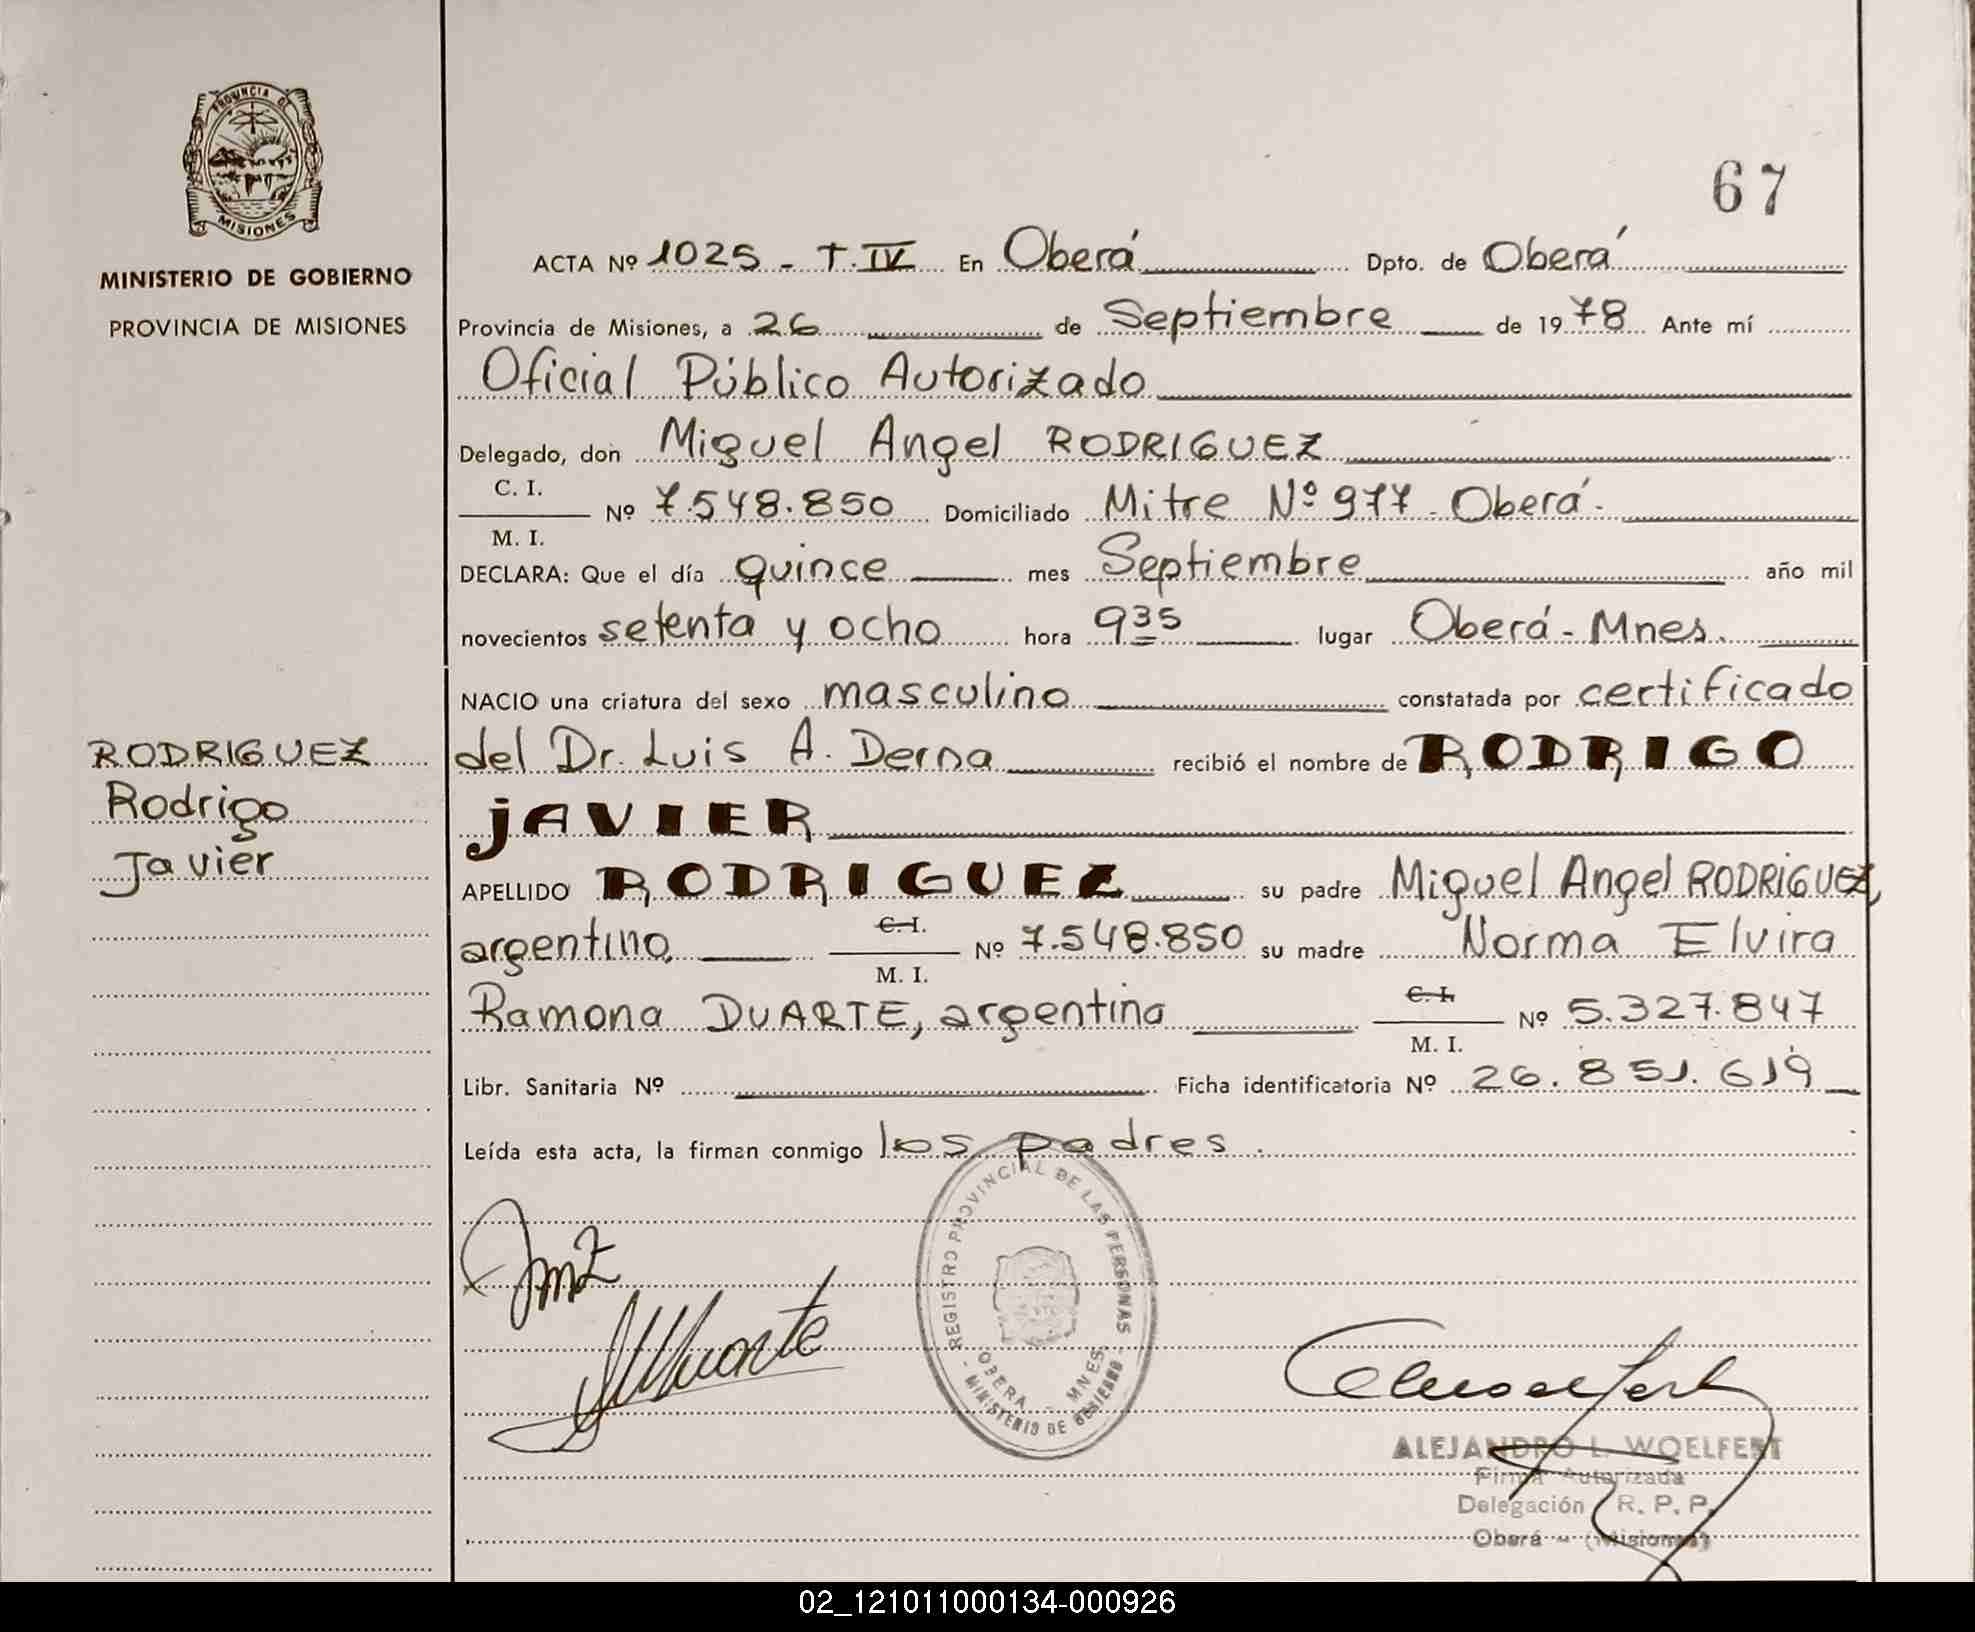 PROVINCIA DE
MISIONES
MINISTERIO DE GOBIERNO
PROVINCIA DE MISIONES
67
ACTA Nº 1025 - T. IV En Oberá Dpto. de Oberá
Provincia de Misiones, a 26 de Septiembre de 1978 Ante mí
Oficial Público Autorizado
Delegado, don Miguel Angel RODRIGUEZ
C. I.
Nº 7.548.850 Domiciliado Mitre Nº 977 - Oberá -
M. I.
DECLARA: Que el día quince mes Septiembre año mil
novecientos setenta y ocho hora 9 35 lugar Oberá - Mnes.
NACIO una criatura del sexo masculino constatada por certificado
del Dr. Luis A. Derna recibió el nombre de RODRIGO
JAVIER
APELLIDO RODRIGUEZ su padre Miguel Angel RODRIGUEZ,
argentino, C. I. Nº 7.548.850 su madre Norma Elvira
M. I.
Ramona DUARTE, argentina C. I. Nº 5.327.847
M. I.
Libr. Sanitaria Nº Ficha identificatoria Nº 26.851.619
Leída esta acta, la firman conmigo los padres.
RODRIGUEZ
Rodrigo
Javier
REGISTRO PROVINCIAL DE LAS PERSONAS
OBERA - MNES
- MINISTERIO DE GOBIERNO -
ALEJANDRO L. WOELFERT
Firma Autorizada
Delegación R. P. P.
Oberá - (Misiones)
02_121011000134-000926